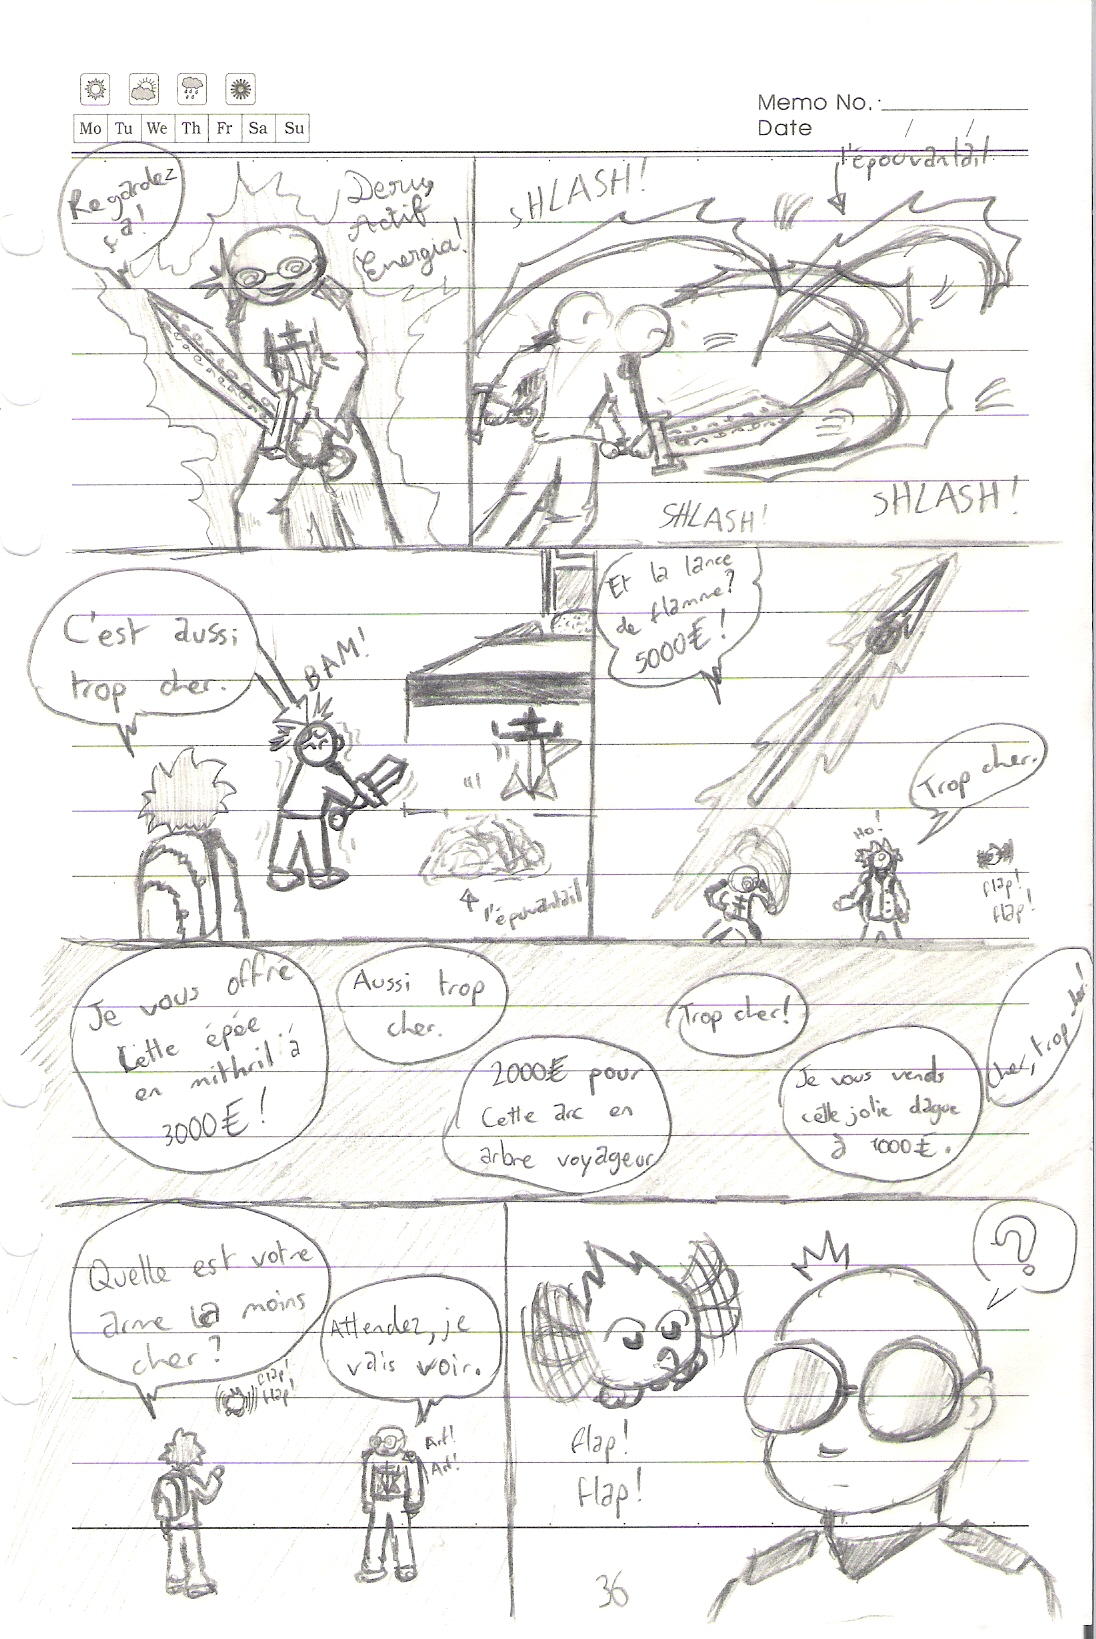 Memo No.:
Date / /
Mo Tu We Th Fr Sa Su
Regardez
ça!
Actif
Energia!
SHLASH!
l'épouvantail
SHLASH!
SHLASH!
C'est aussi
trop cher.
BAM!
l'épouvantail
Et la lance
de flamme?
5000€!
Trop cher.
HO!
flap!
flap!
Je vous offre
Cette épée
en mithril à
3000€!
Aussi trop
cher.
2000€ pour
Cette arc en
arbre voyageur
Trop cher!
Je vous vends
cette jolie dague
à 1000€.
cher, trop cher!
Quelle est votre
arme la moins
cher?
flap!
flap!
Attendez, je
vais voir.
Arf!
Arf!
?
flap!
flap!
36